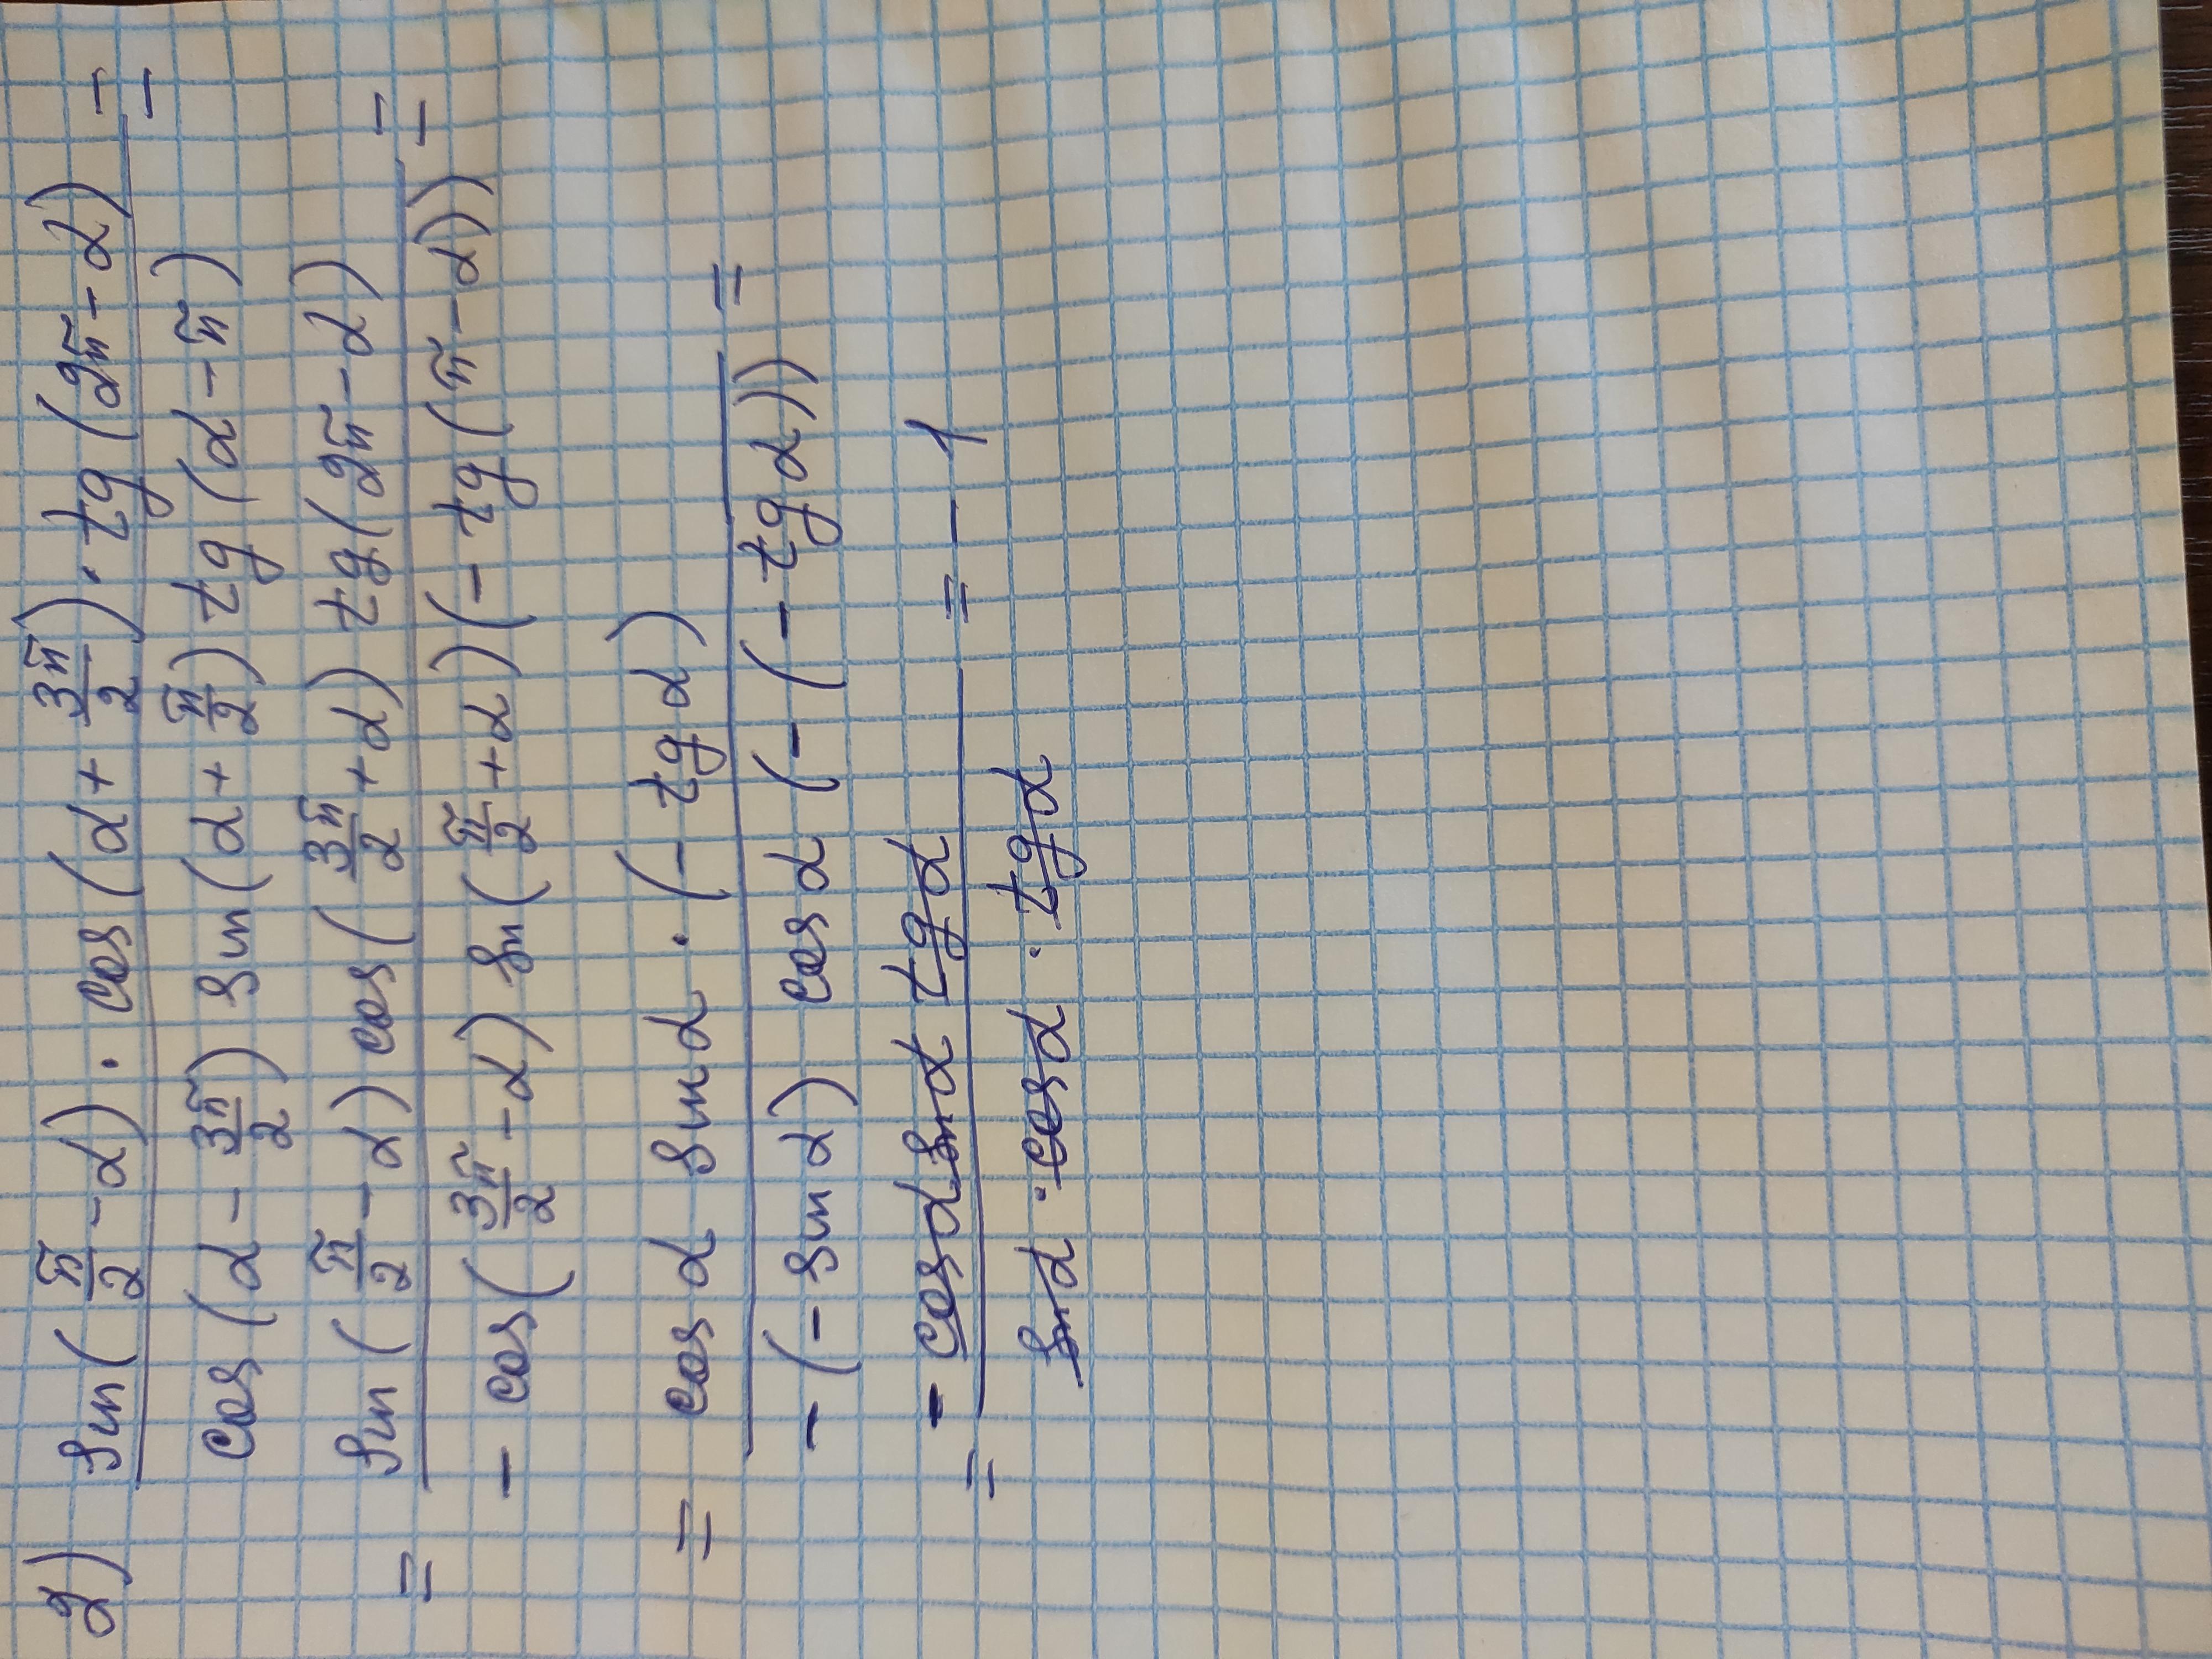 2) sin(π/2 - α) · cos(α + 3π/2) · tg(2π - α) =
cos(α - 3π/2) sin(α + π/2) tg(α - π)
= sin(π/2 - α) cos(3π/2 + α) tg(2π - α) =
- cos(3π/2 - α) sin(π/2 + α)(- tg(π - α))
= cos α sin α · (- tg α) =
- (- sin α) cos α (- (- tg α))
= - cos α sin α tg α = - 1
sin α · cos α · tg α